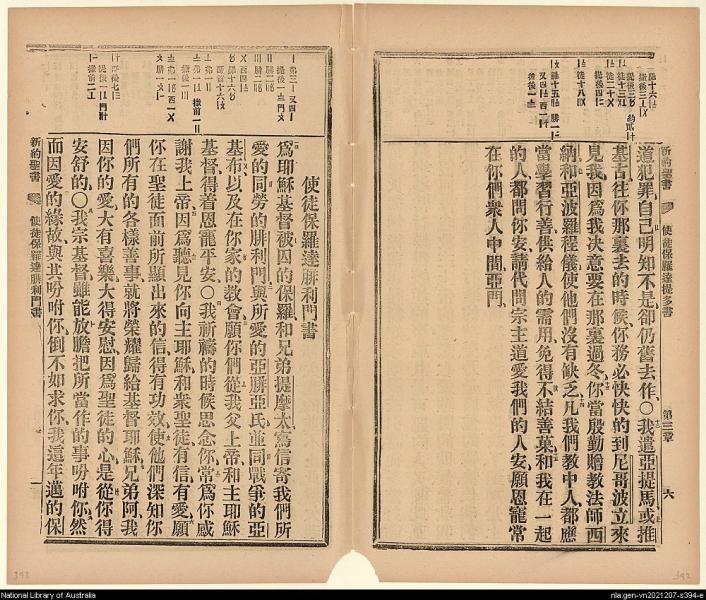 新約聖書 使徒保羅達提多書 第三章 六
道犯罪、自己明知不是卻仍舊去作、〇我遣亞提馬或推
基古往你那裏去的時候你務必快快的到尼哥波立來
見我因爲我決意要在那裏過冬、你當殷勤贈教法師西
納、和亞波羅程儀使他們沒有缺乏、凡我們教中人都應
當學習行善供給人的需用、免得不結善菓、和我在一起
的人都問你安、請代問宗主道愛我們的人安、願恩寵常
在你們衆人中間亞門、
使徒保羅達腓利門書
爲耶穌基督被囚的保羅和兄弟提摩太寫信寄我們所
愛的同勞的腓利門、與所愛的亞腓亞氏、並同戰爭的亞
基布、以及在你家的教會、願你們從我父上帝和主耶穌
基督、得着恩寵平安、〇我祈禱的時候思念你常爲你感
謝我上帝因爲聽見你向主耶穌和衆聖徒有信有愛、願
你在聖徒面前所顯出來的信得有功效使他們深知你
們所有的各樣善事就將榮耀歸給基督耶穌兄弟阿我
因你的愛大有喜樂、大得安慰、因爲聖徒的心是從你得
安舒的、〇我宗基督雖能放膽把所當作的事吩咐你、然
而因愛的緣故與其吩咐你、倒不如求你、我這年邁的保
新約聖書 使徒保羅達腓利門書 一
393
392
National Library of Australia
nla.gen-vn2021207-s394-e